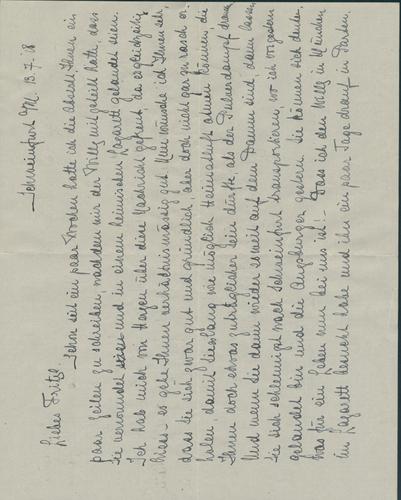 Schweinfurt a/M. 13.7.18
Lieber Fritz! Schon seit ein paar Wochen hatte ich die Absicht Ihnen ein
paar Zeilen zu schreiben, nachdem mir der Willy mitgeteilt hatte, dass
Sie verwundet seien und in einem heimischen Lazarett gelandet seien.
Ich hab mich von Herzen über diese Nachricht gefreut, da es gleichzeitig
hiess - es gehe Ihnen verhältnismässig gut. Nun wünsche ich Ihnen sehr,
dass Sie sich zwar gut und gründlich, aber doch nicht gar zu rasch er-
holen, damit Sie so lang wie möglich Heimatluft atmen können, die
Ihnen doch etwas zuträglicher sein dürfte, als der Pulverdampf draussen
Und wenn Sie dann wieder soweit auf dem Damm sind, dann lassen
Sie sich schleunigst nach Schweinfurt transportieren, wo ich vorgestern
gelandet bin und die Augsburger gestern. Sie können sich denken,
was für ein Leben nun bei uns ist! - Dass ich den Willy in München
im Lazarett besucht habe und ihn ein paar Tage drauf in